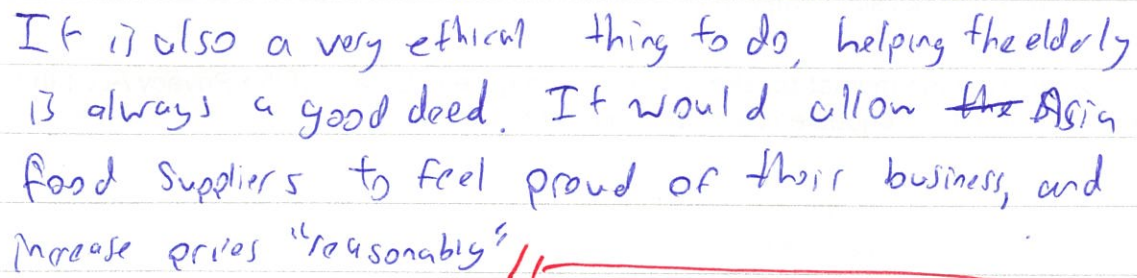 It is also a very ethical thing to do, helping the elderly
is always a good deed. It would allow ~~the~~ Asia
food suppliers to feel proud of their business, and
increase prices "reasonably"